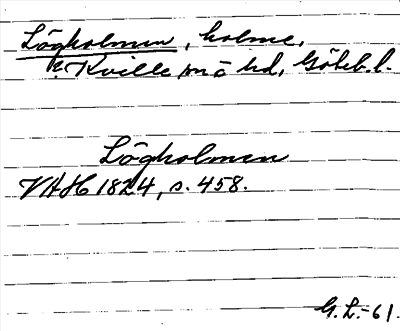 Lögholmen, holme,
Kville sn å hd, Göteb. l.
Lögholmen
VAH 1824, s. 458.
G. L. -61.